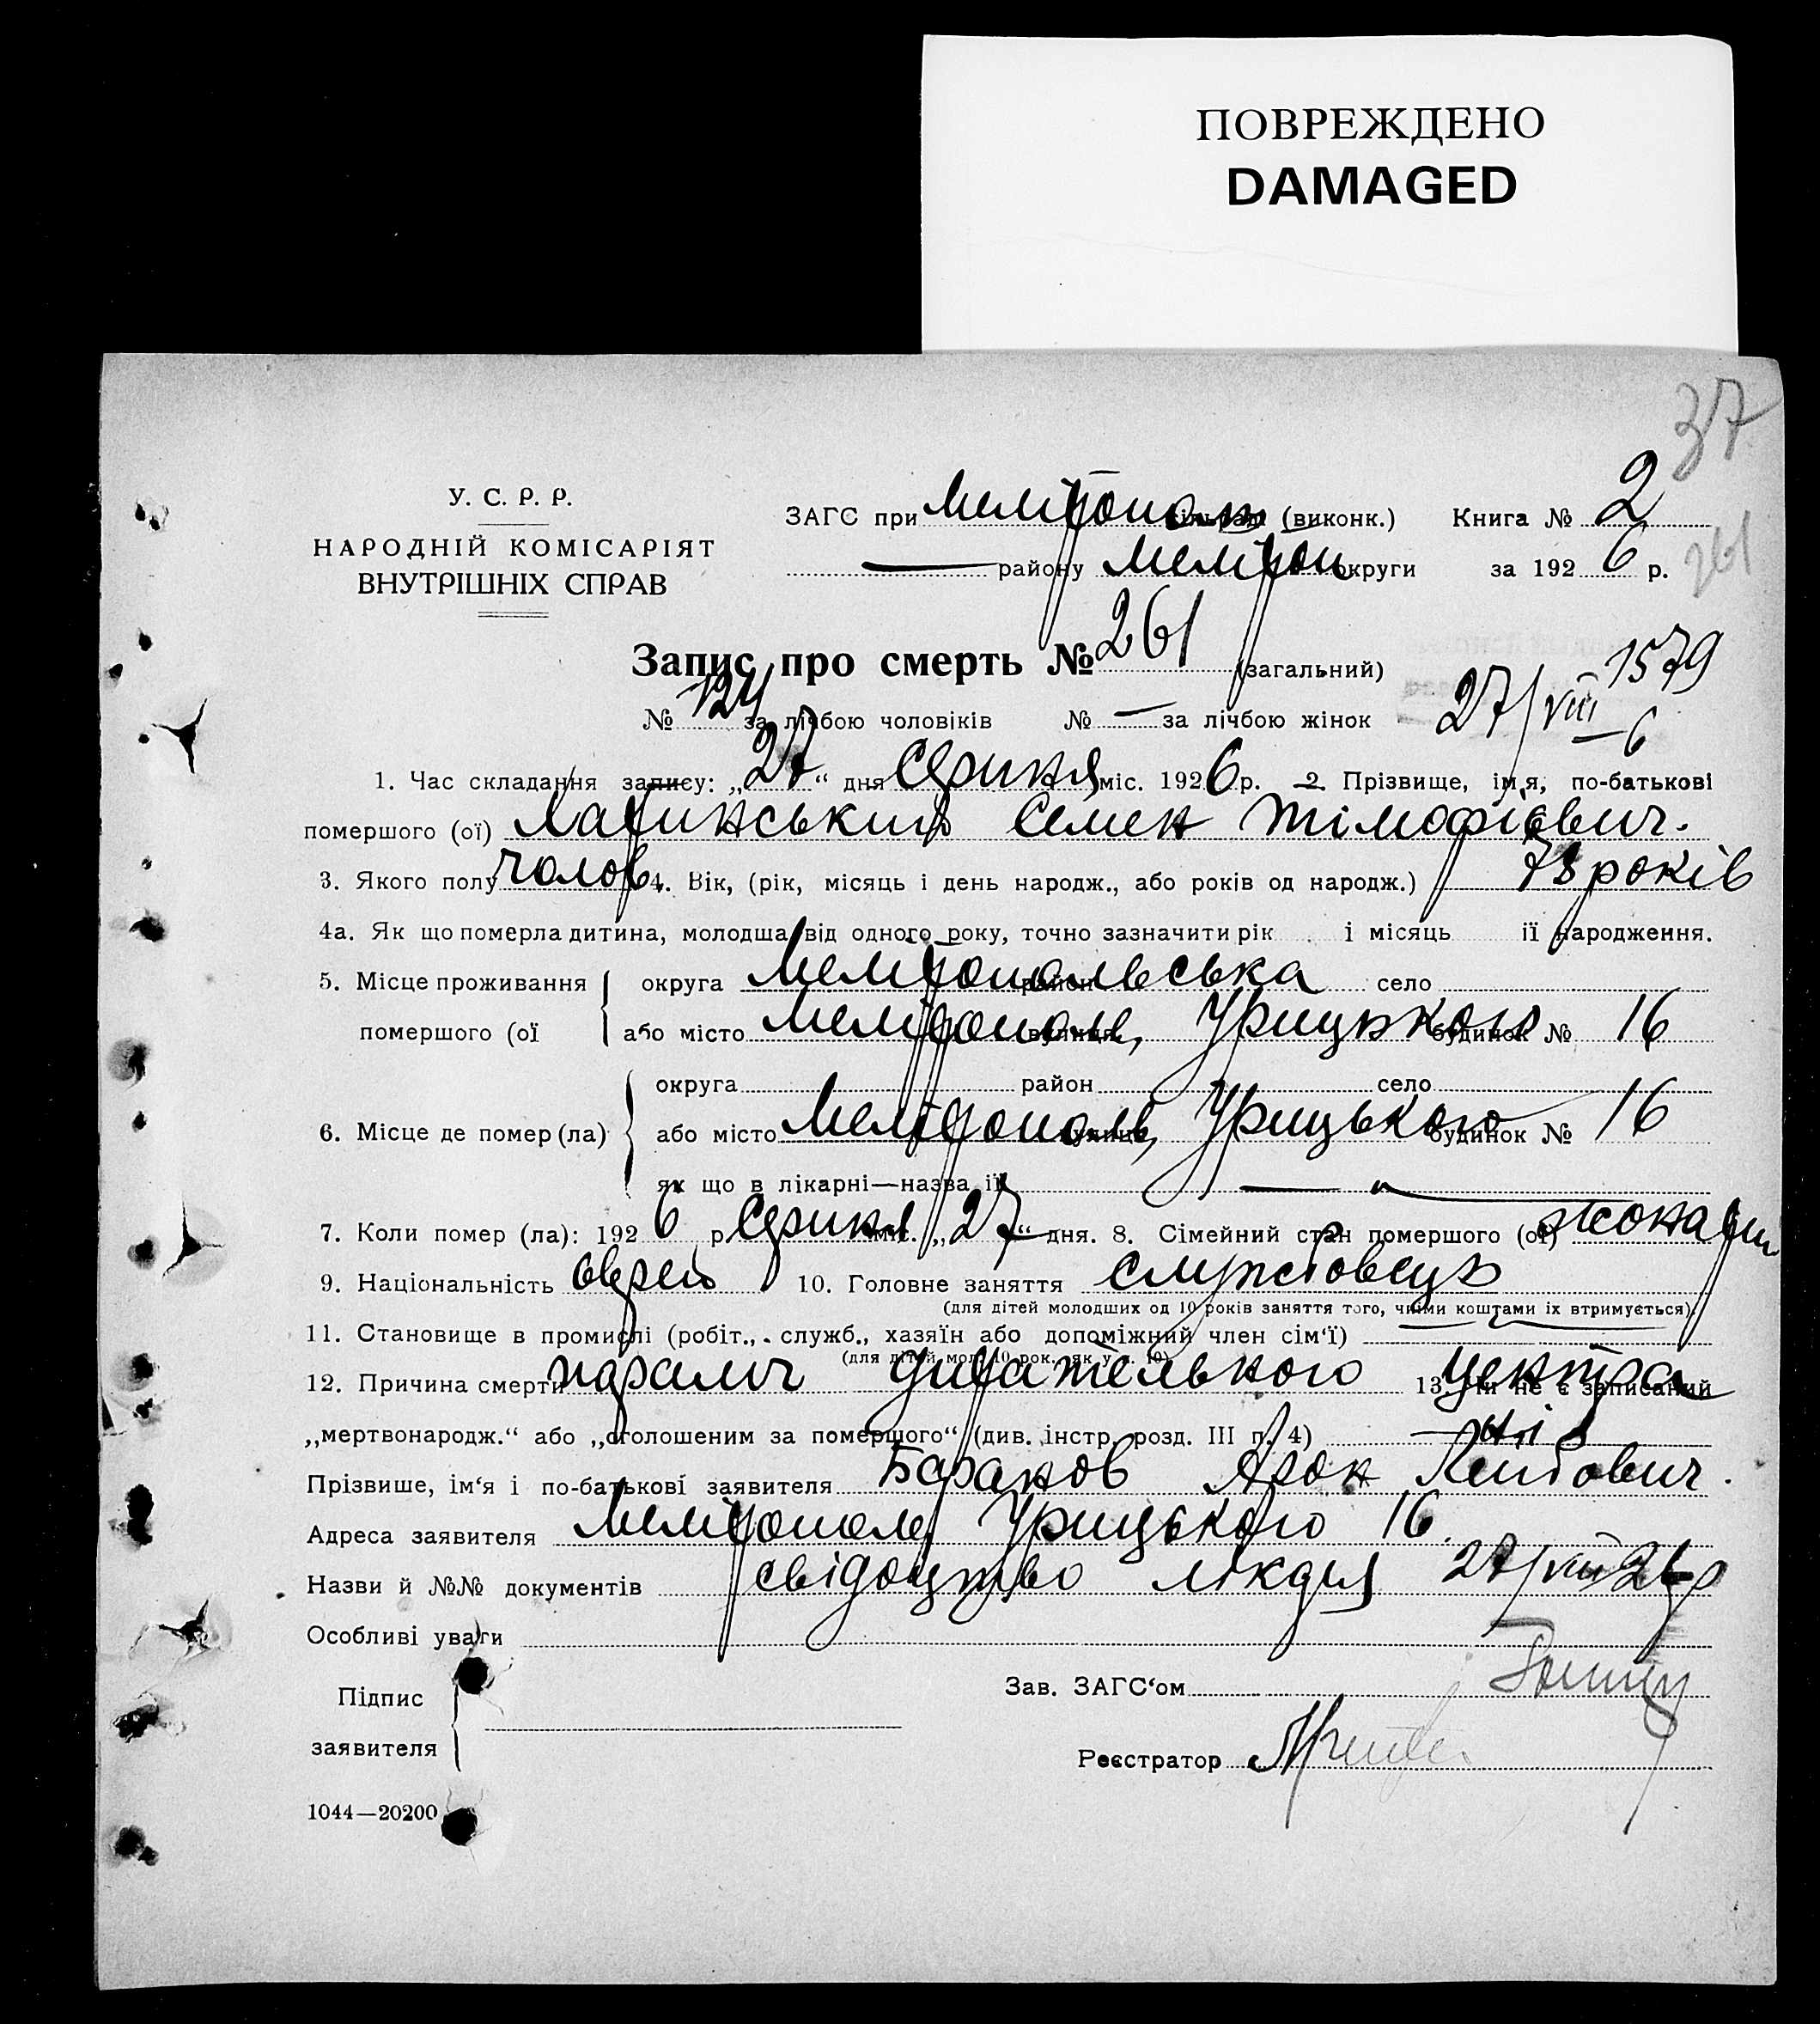 ПОВРЕЖДЕНО
DAMAGED
37
У. С. Р. Р.
НАРОДНІЙ КОМІСАРІЯТ
ВНУТРІШНІХ СПРАВ
ЗАГС при Мелітополь сільраді (виконк.) Книга № 2
— району Мелітоп округи за 1926 р. 261
Запис про смерть № 261 (загальний)
1579
№ 124 за лічбою чоловіків № — за лічбою жінок 27/VIII—6
1. Час складання запису: „27“ дня Серпня міс. 1926 р. 2. Прізвище, ім'я, по-батькові
помершого (ої) Семен Тімофієвич.
3. Якого полу чолов. 4. Вік, (рік, місяць і день народж., або років од народж.) 73 років
4а. Як що померла дитина, молодша від одного року, точно зазначити рік і місяць її народження.
5. Місце проживання помершого (ої округа Мелітопольська район село
або місто Мелітополь, вулиця Урицького будинок № 16
6. Місце де помер (ла) округа район село
або місто Мелітополь, вулиця Урицького будинок № 16
як що в лікарні—назва її — „ —
7. Коли помер (ла): 1926 р. Серпня міс. „27“ дня. 8. Сімейний стан помершого (ої)
9. Національність еврей 10. Головне заняття службовець
(для дітей молодших од 10 років заняття того, чиїми коштами їх втримується)
11. Становище в промислі (робіт., служб., хазяїн або допоміжний член сім'ї)
(для дітей мол. 10 рок. як у п. 10)
12. Причина смерти параліч центра 13. Чи не є записаний
„мертвонародж.“ або „оголошеним за помершого“ (див. інстр. розд. III п. 4) — ні
Прізвише, ім'я і по-батькові заявителя Баранов Арон Лейбович.
Адреса заявителя Мелітополь, Урицького 16.
Назви й №№ документів свідоцтво лікаря 27/VIII 26 р
Особливі уваги
Підпис
заявителя
Зав. ЗАГС'ом
Реєстратор
1044—20200